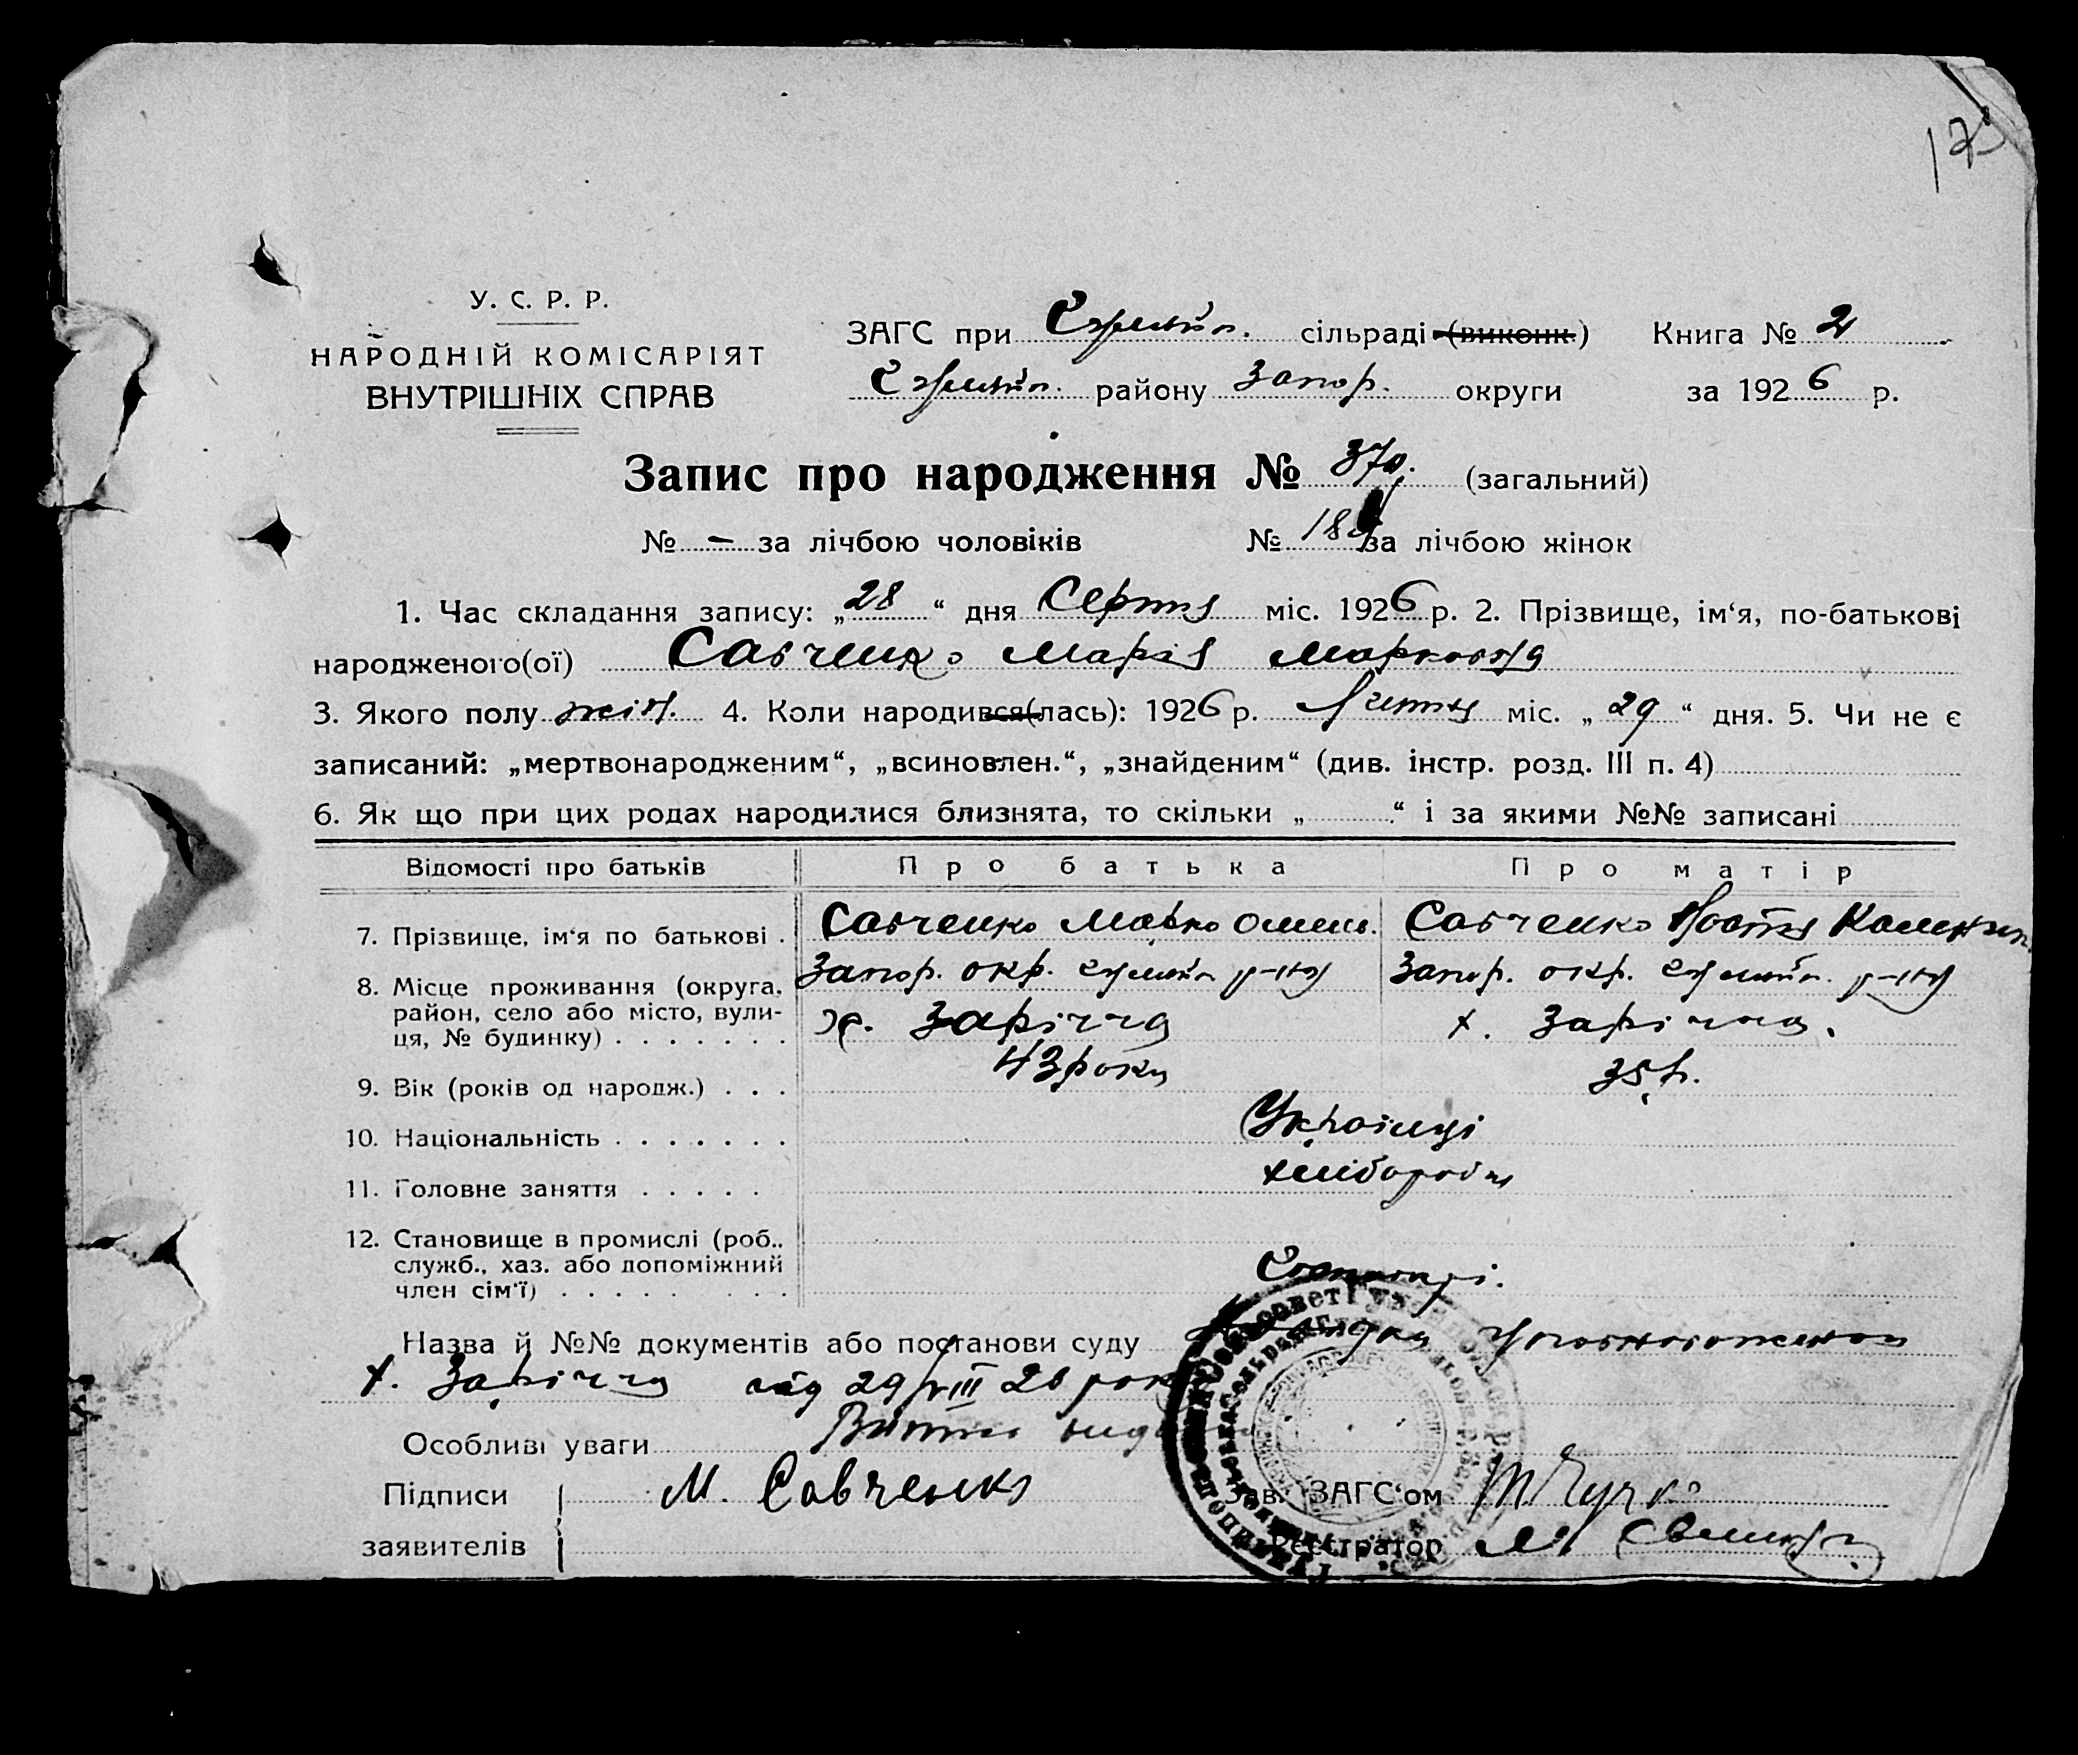 173
У. С. Р. Р.
НАРОДНІЙ КОМІСАРІЯТ
ВНУТРІШНІХ СПРАВ
ЗАГС при сільраді (виконк.) Книга № 2
району Запор. округи за 1926 р.
Запис про народження № 370. (загальний)
№ – за лічбою чоловіків № за лічбою жінок
1. Час складання запису: „28“ дня Серпня міс. 1926 р. 2. Прізвище, ім‘я, по-батькові
народженого(ої) Савченко Марія Марковна
3. Якого полу жін. 4. Коли народився(лась): 1926 р. міс. „29“ дня. 5. Чи не є
записаний: „мертвонародженим“, „всиновлен.“, „знайденим“ (див. інстр. розд. III п. 4)
6. Як що при цих родах народилися близнята, то скільки „ “ і за якими №№ записані
Відомості про батьків Про батька Про матір
7. Прізвище, ім‘я по батькові . Савченко Марко Савченко
8. Місце проживання (округа, Запор. окр. р-ну Запор. окр. р-ну
район, село або місто, вули- х. Заріччя х. Заріччя.
ця, № будинку) . . . . . . .
9. Вік (років од народж.) . . . 43 роки 35 р.
10. Національність . . . . . . . Українці
11. Головне заняття . . . . . хлібороби
12. Становище в промислі (роб.,
служб., хаз. або допоміжний
член сім‘ї) . . . . . . . .
Назва й №№ документів або постанови суду
х. Заріччя від 29/VIII 26 року
Особливі уваги
Підписи М. Савченко Зав. ЗАГС‘ом
заявителів Реєстратор